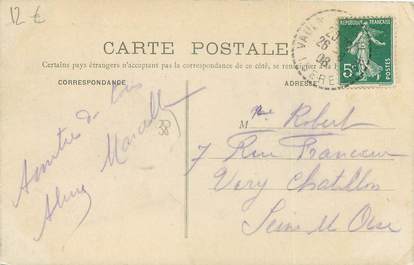 12 €
CARTE POSTALE
Certains pays étrangers n'acceptant pas la correspondance de ce côté, se renseigner
CORRESPONDANCE
ADRESSE
REPUBLIQUE FRANÇAISE
5c
POSTES
26
08
38
Amitiés de tous
Marcelle
M Robert
7 Rue
Viry Chatillon
Seine et Oise